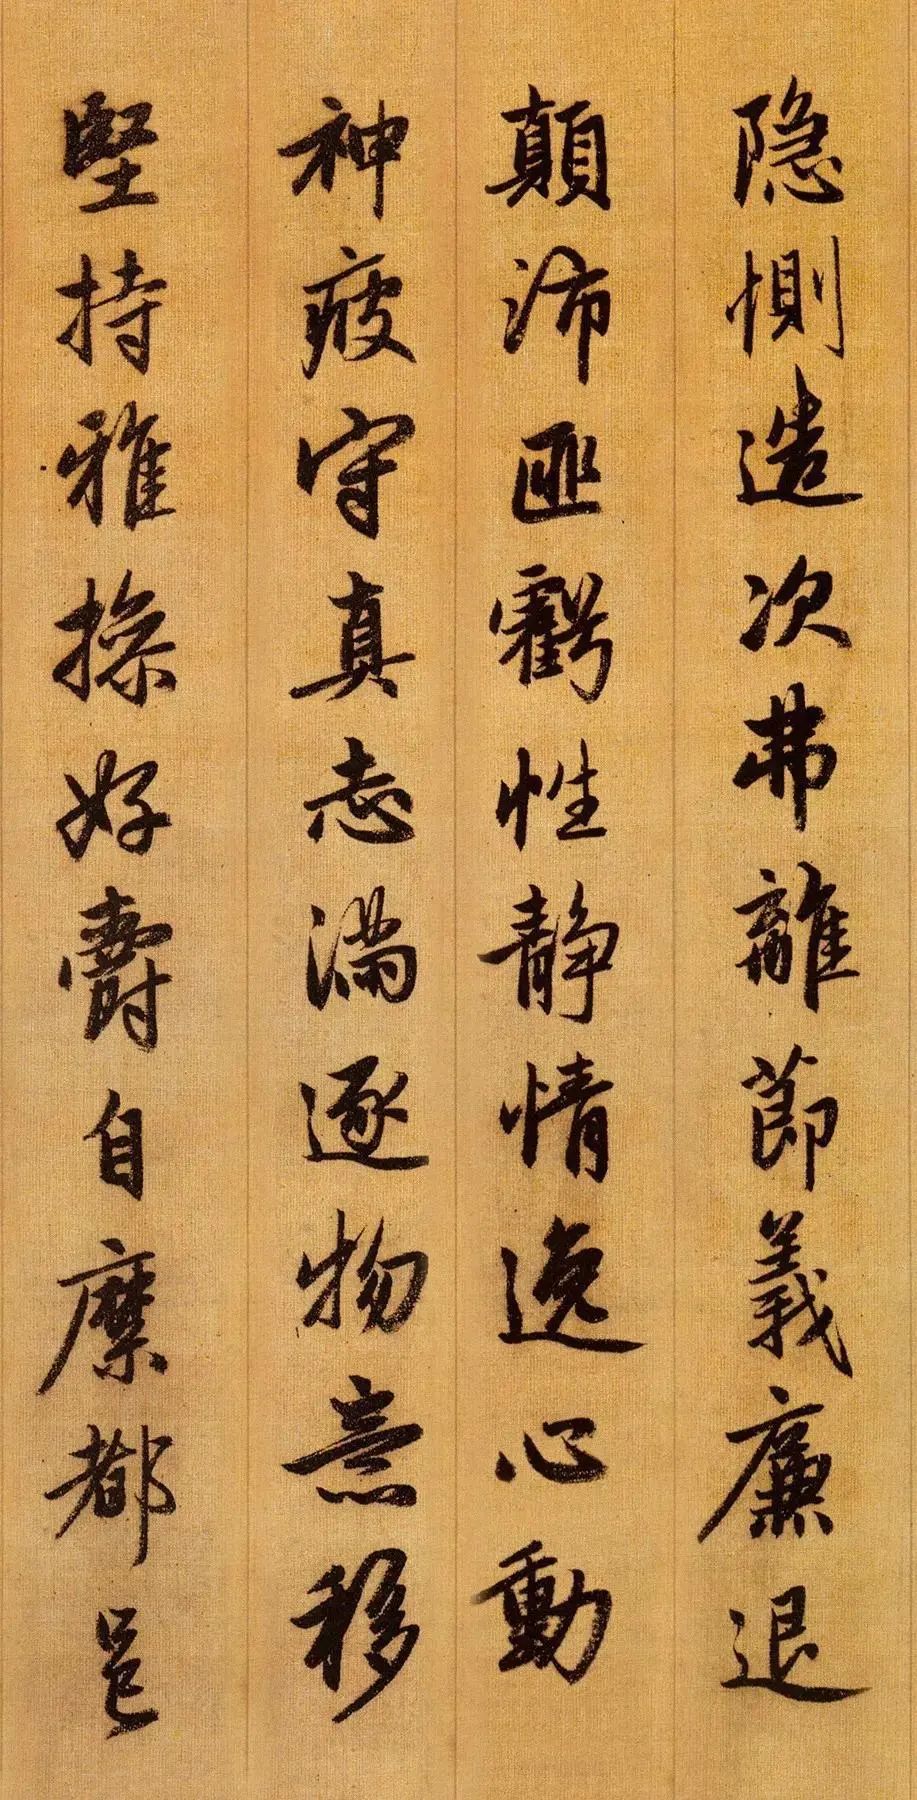 隐惻造次弗離節義廉退
顛沛匪虧性静情逸心動
神疲守真志滿逐物意移
堅持雅操好爵自縻都邑